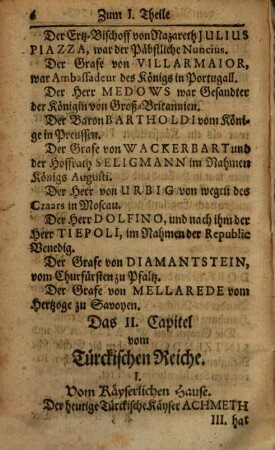 6 Zum I. Theile
Der Ertz-Bischoff von Nazareth JULIUS
PIAZZA, war der Päbstliche Nuncius.
Der Grafe von VILLARMAIOR,
war Ambassadeur des Königs in Portugall.
Der Herr MEDOWS war Gesandter
der Königin von Groß-Britannien.
Der Baron BARTHOLDI vom Köni-
ge in Preussen.
Der Grafe von WACKERBART und
der Hoffrath SELIGMANN im Nahmen
Königs Augusti.
Der Herr von URBIG von wegen des
Czaars in Moscau.
Der Herr DOLFINO, und nach ihm der
Herr TIEPOLI, im Nahmen der Republic
Venedig.
Der Grafe von DIAMANTSTEIN,
vom Churfürsten zu Pfaltz.
Der Grafe von MELLAREDE vom
Hertzoge zu Savoyen.
Das II. Capitel
vom
Türckischen Reiche.
I.
Vom Käyserlichen Hause.
Der heutige Türckische Käyser ACHMETH
III. hat